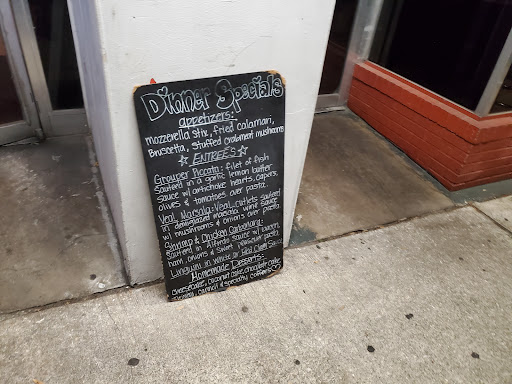 Dinner Specials
appetizers:
mozzerella stix, fried calamari,
Bruscetta, stuffed crabmeat mushrooms
☆ ENTREES ☆
Grouper Piccata: filet of fish
Sauteed in a garlic lemon butter
sauce w/ artichoke hearts, capers,
olives & tomatoes over pasta.
Veal Marsala: Veal-cutlets sauteed
in demiglazed marsala wine sauce
w/ mushrooms & onions over pasta
Shrimp & Chicken Carbonara:
Sauteed in Alfredo sauce w/ bacon,
ham, onions & sweet peas over pasta.
Linguini in White or Red Clam Sauce
Homemade Desserts:
cheesecake, coconut cake, chocolate cake
cannoli & specialty coffees ♡